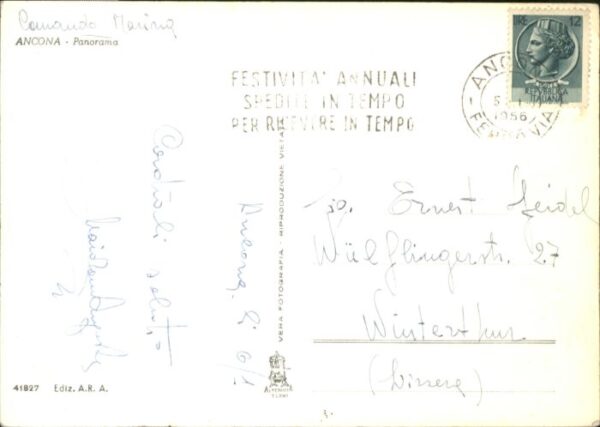 Comando Marina
ANCONA - Panorama
LIRE 12
REPUBBLICA
ITALIANA
1956
FERROVIA
FESTIVITA' ANNUALI
SPEDITE IN TEMPO
PER RICEVERE IN TEMPO
Ancona, li 6/1
Cordiali saluti
VERA FOTOGRAFIA - RIPRODUZIONE VIETATA
Sig. Ernest Zeidel
Wülflingerstr. 27
Winterthur
(Svizzera)
41827 Ediz. A.R.A.